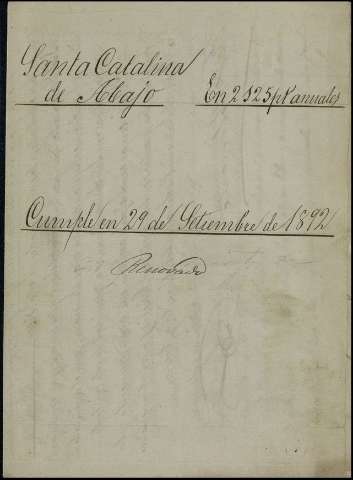 Santa Catalina
de Abajo En 2525 pts anuales
Cumple en 29 de Setiembre de 1892
Renovado